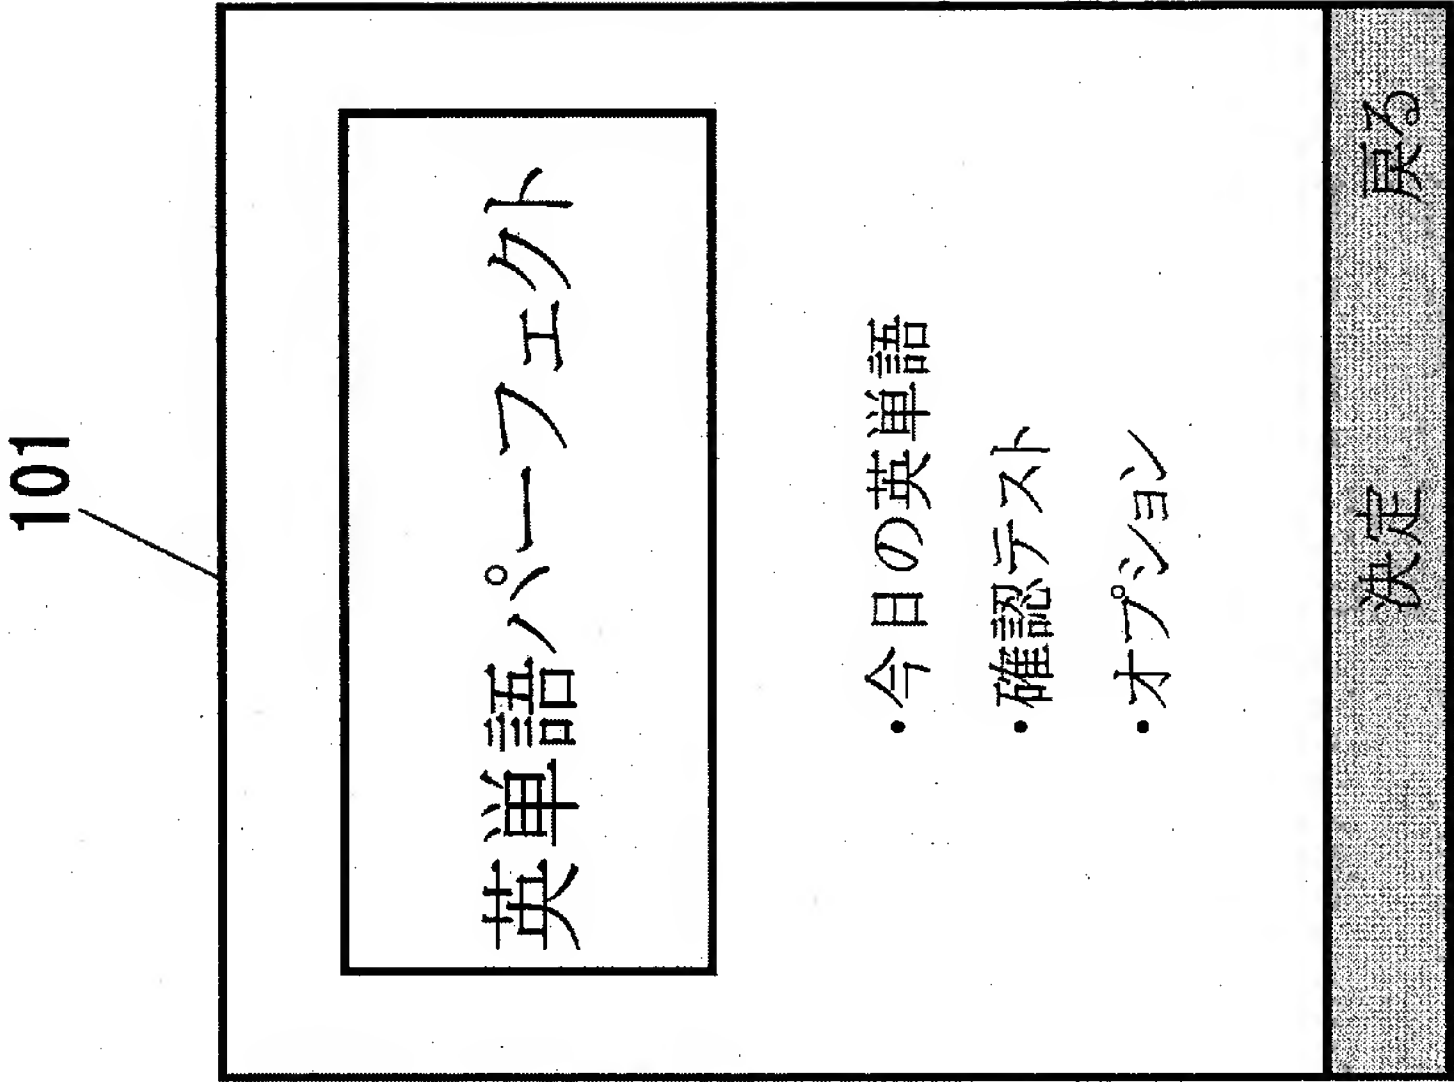 101
英単語パーフェクト
・今日の英単語
・確認テスト
・オプション
決定 戻る